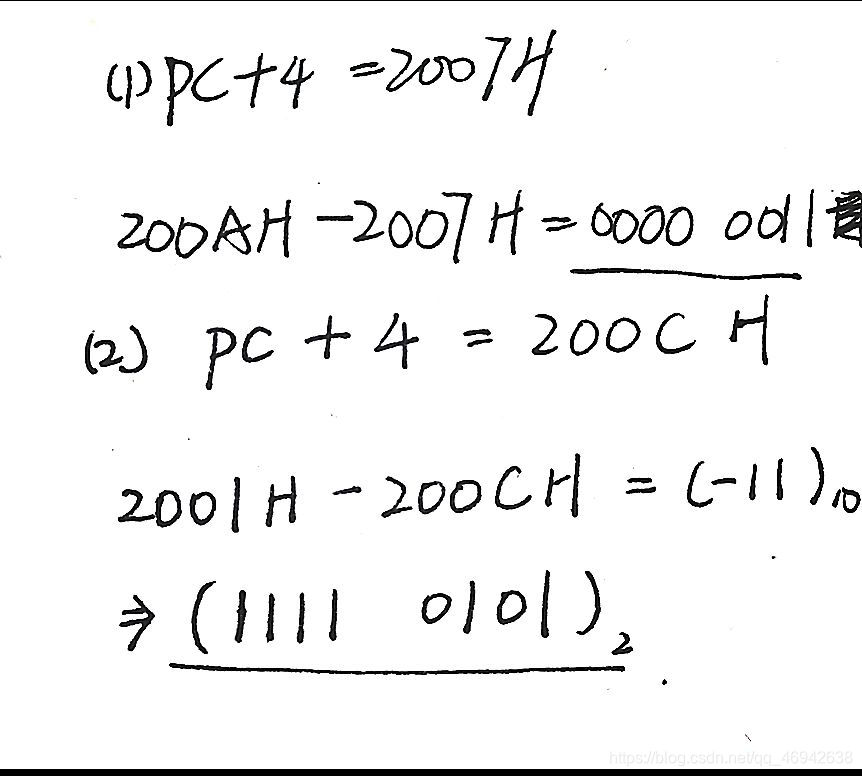 (1) PC+4 =2007H
200AH-2007H=0000 0011
(2) PC + 4 = 200C H
2001H - 200CH = (-11)10
⇒ (1111 0101)2
https://blog.csdn.net/qq_46942638